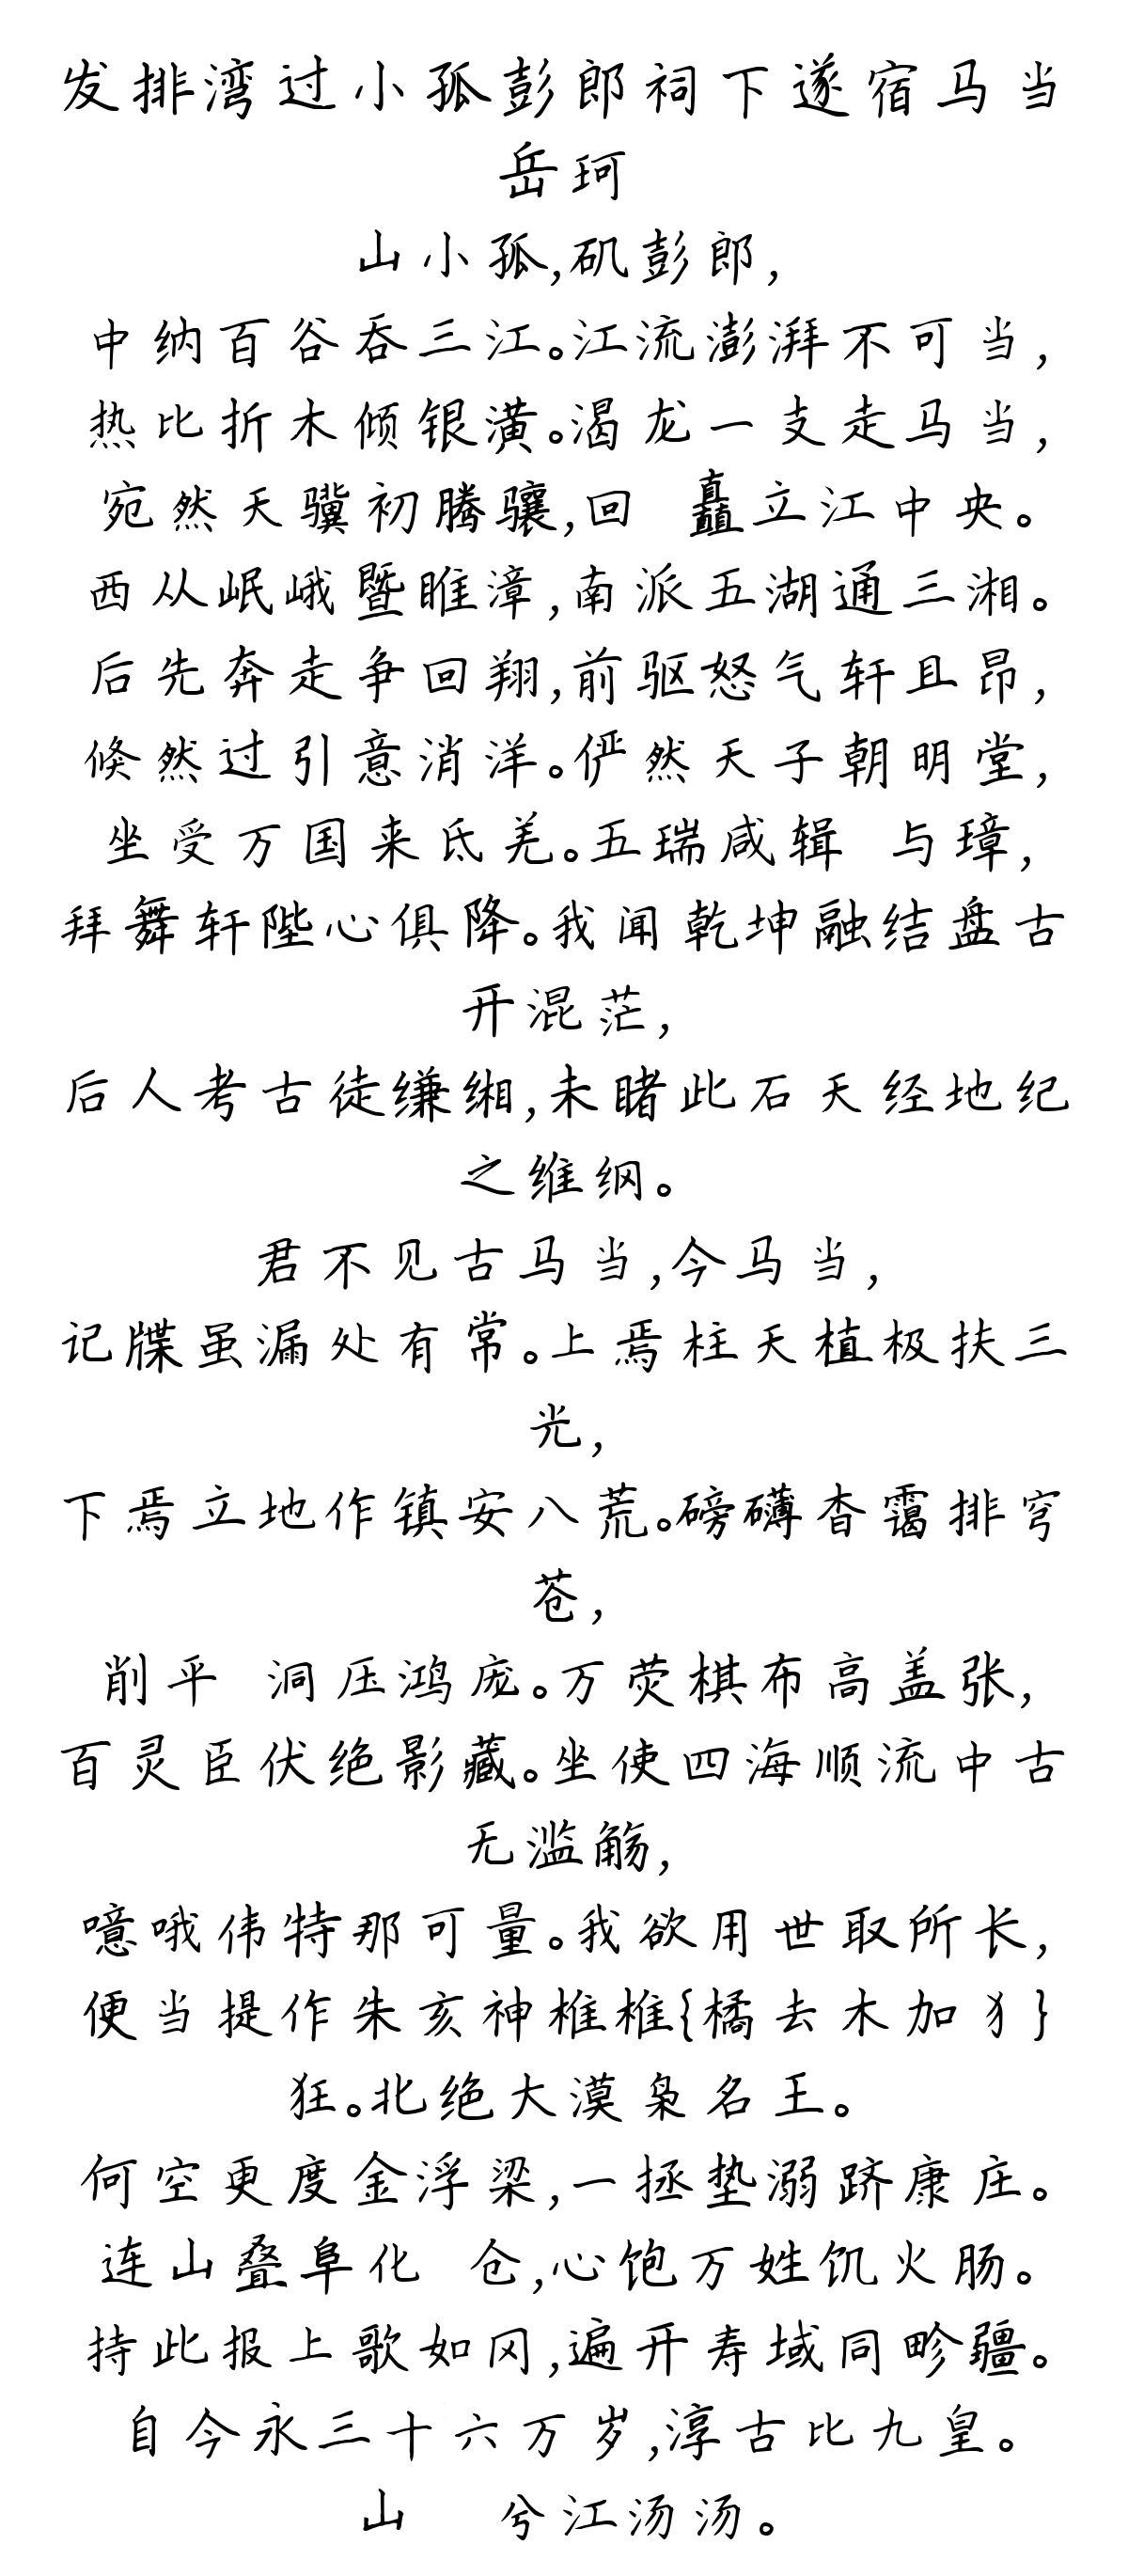 发排湾过小孤彭郎祠下遂宿马当
岳珂
山小孤,矶彭郎,
中纳百谷吞三江。江流澎湃不可当,
热比折木倾银潢。渴龙一支走马当,
宛然天骥初腾骧,回 矗立江中央。
西从岷峨暨睢漳,南派五湖通三湘。
后先奔走争回翔,前驱怒气轩且昂,
倏然过引意消洋。俨然天子朝明堂,
坐受万国来氐羌。五瑞咸辑 与璋,
拜舞轩陛心俱降。我闻乾坤融结盘古
开混茫,
后人考古徒缣缃,未睹此石天经地纪
之维纲。
君不见古马当,今马当,
记牒虽漏处有常。上焉柱天植极扶三
光,
下焉立地作镇安八荒。磅礴杳霭排穹
苍,
削平 洞压鸿庞。万荧棋布高盖张,
百灵臣伏绝影藏。坐使四海顺流中古
无滥觞,
噫哦伟特那可量。我欲用世取所长,
便当提作朱亥神椎椎{橘去木加犭}
狂。北绝大漠枭名王。
何空更度金浮梁,一拯垫溺跻康庄。
连山叠阜化 仓,心饱万姓饥火肠。
持此报上歌如冈,遍开寿域同畛疆。
自今永三十六万岁,淳古比九皇。
山 兮江汤汤。